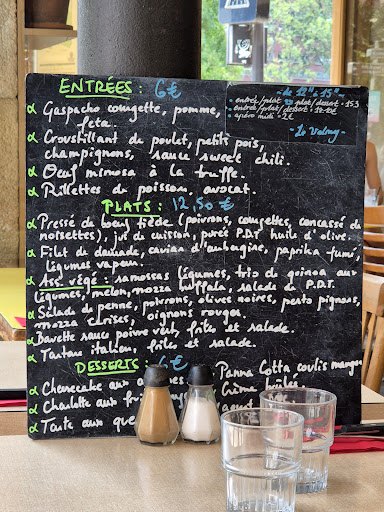 ENTRÉES : 6€
Gaspacho courgette, pomme,
feta.
Croustillant de poulet, petits pois,
champignons, sauce sweet chili.
Oeuf mimosa à la truffe.
Rillettes de poisson, avocat.
- de 12h à 15h -
- entrée/plat ou plat/dessert
- entrée/plat/dessert
- apéro midi = 2€
- Le Valmy -
PLATS : 12,50 €
Pressé de boeuf tiède (poivrons, courgettes, concassé de
noisettes), jus de cuisson, purée P.D.T. huile d'olive.
Filet de daurade, caviar d'aubergine, paprika fumé,
légumes vapeur
Ass. végé : samossas légumes, trio de quinoa aux
légumes, melon, mozza buffala, salade de P.D.T.
Salade de penne, poivrons, olives noires, pesto pignons,
mozza cerises, oignons rouges.
Bavette sauce poivre vert, frites et salade.
Tartare italien, frites et salade.
DESSERTS : 6€
Cheesecake aux
Charlotte aux
Tarte aux
Panna Cotta coulis mangue
Crème brûlée